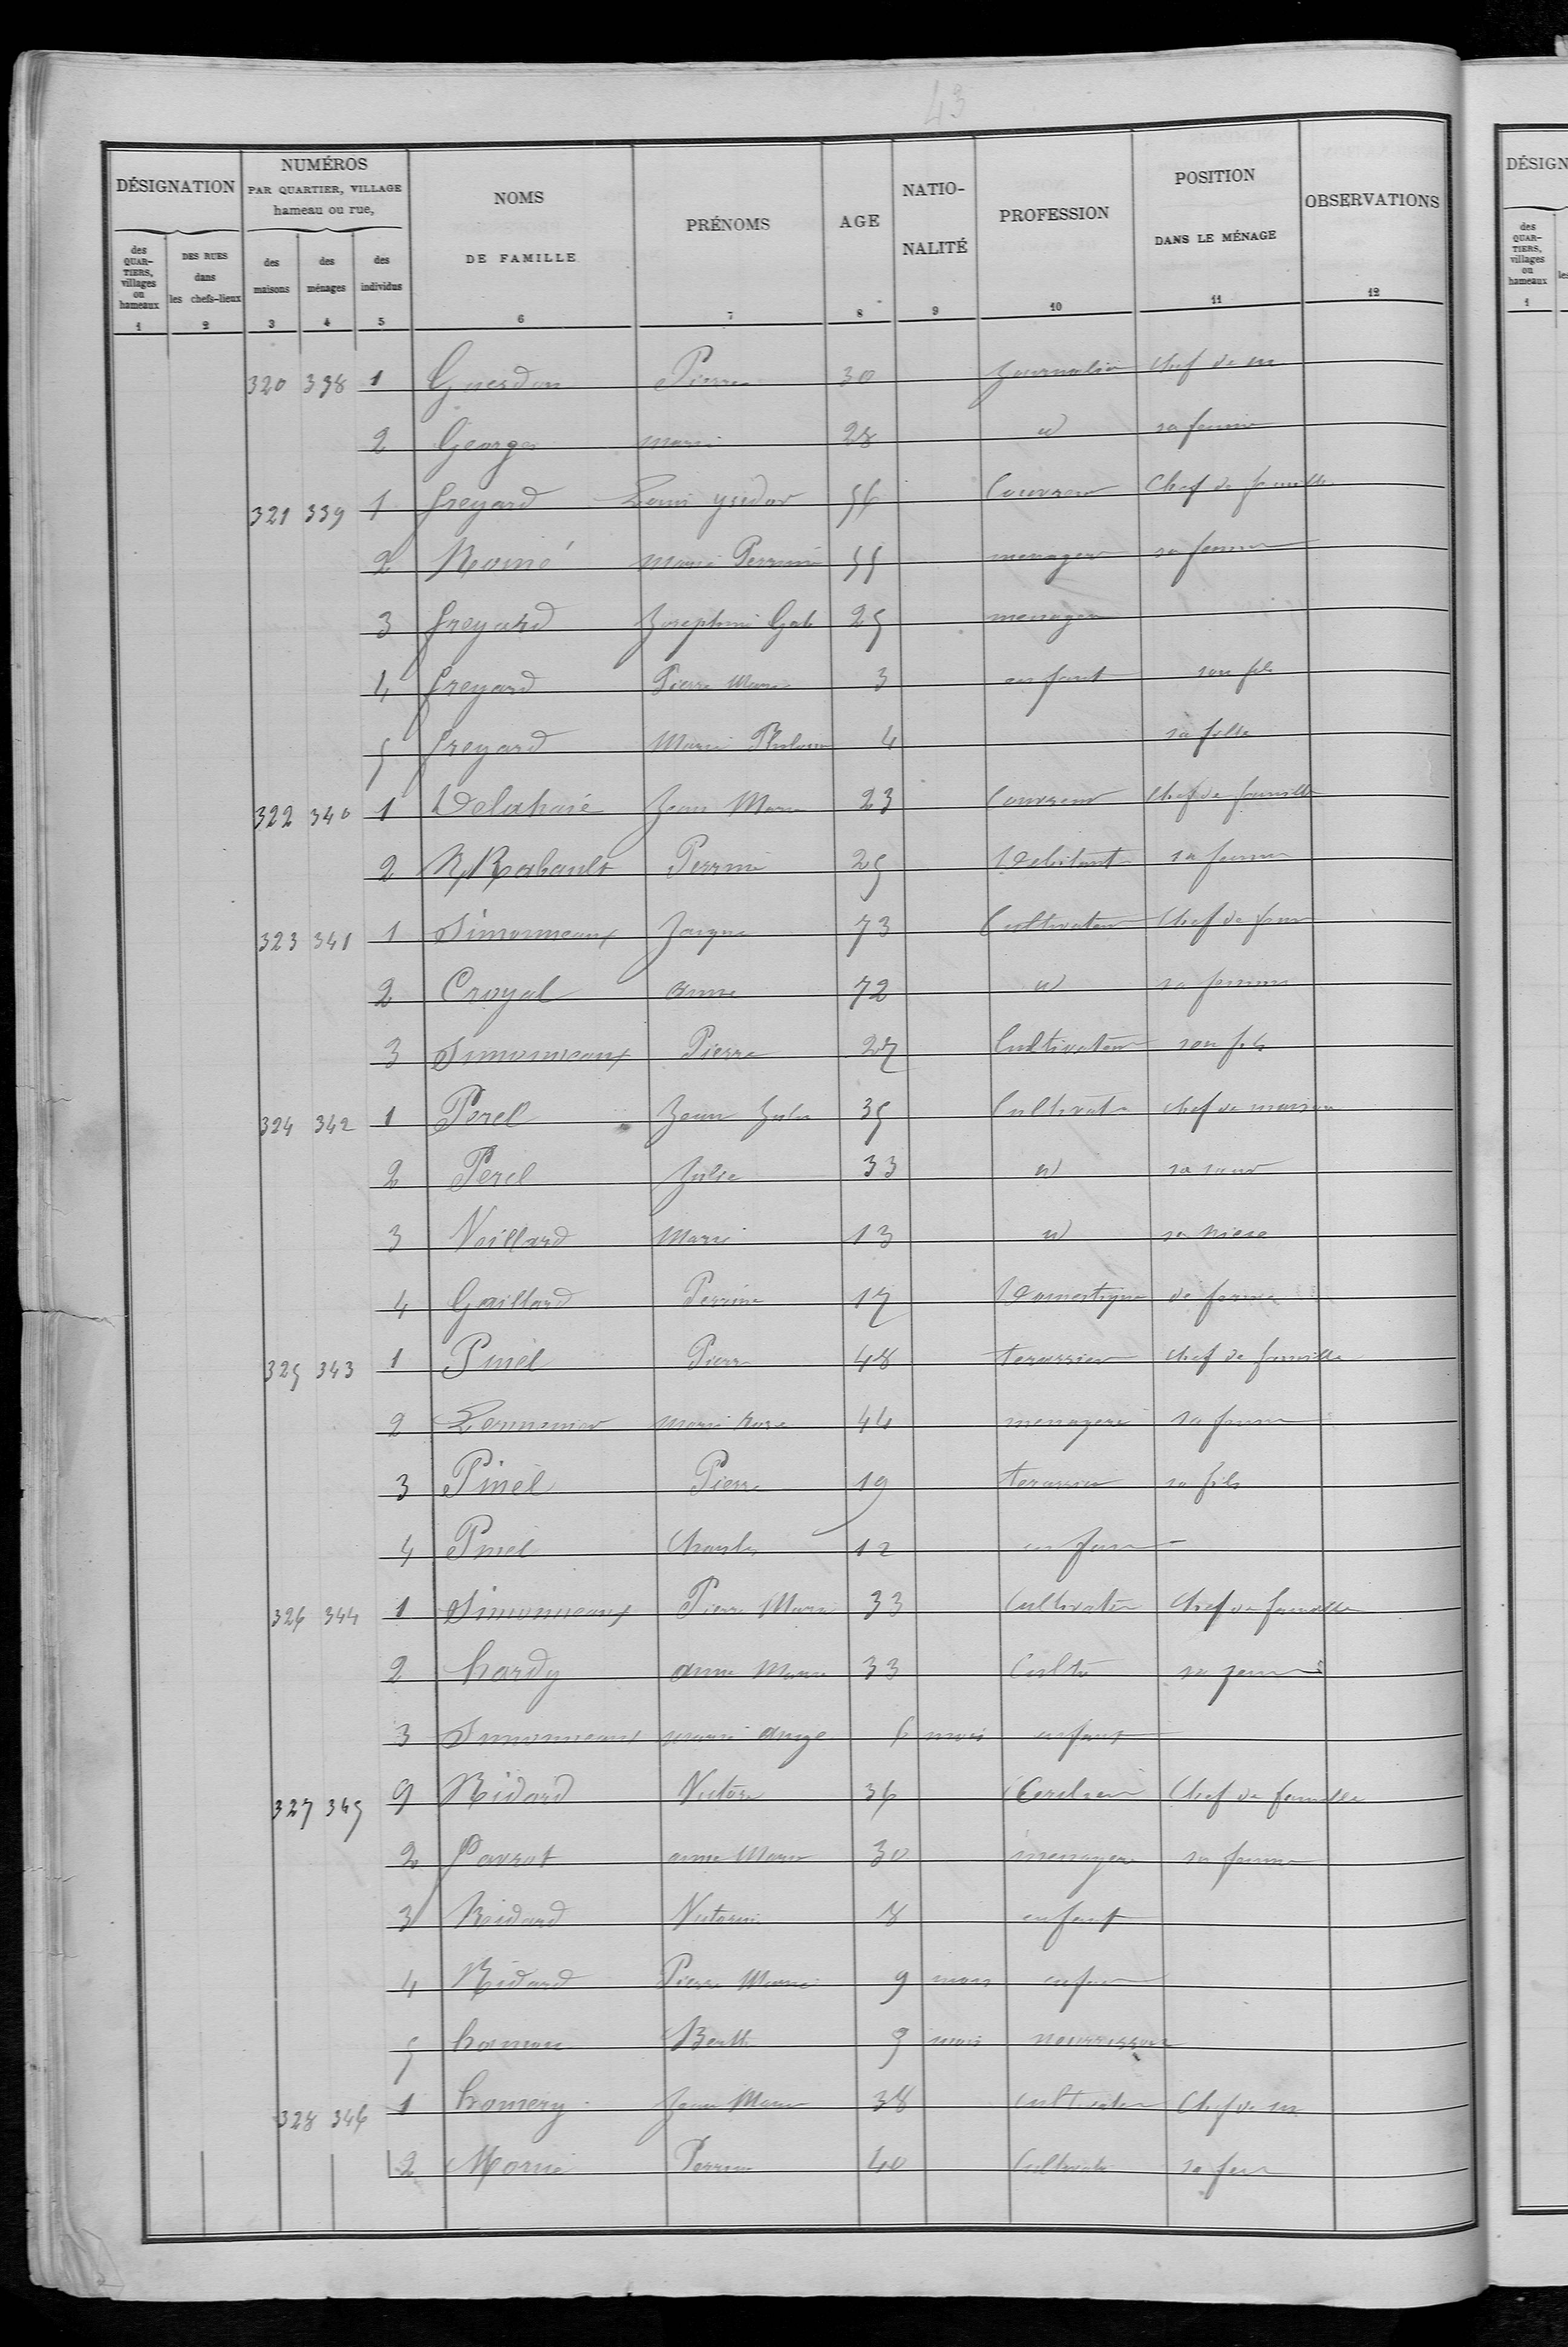 43
DÉSIGNATION NUMÉROS PAR QUARTIER, VILLAGE hameau ou rue, NOMS DE FAMILLE PRÉNOMS AGE NATIO-NALITÉ PROFESSION POSITION DANS LE MÉNAGE OBSERVATIONS
des QUAR-TIERS, villages ou hameaux DES RUES dans les chefs-lieux des maisons des ménages des individus
1 2 3 4 5 6 7 8 9 10 11 12
320 338 1 Guerdon Pierre 30 Journalier Chef de m
2 Georges Marie 28 id sa femme
321 339 1 freyard Louis ysidor 56 Couvreur Chef de famille
2 marie Perrine 55 menagere sa femme
3 freyard Josephine Gab 25 menagere
4 freyard Pierre Marie 3 enfant son fils
5 freyard Marie 4 sa fille
322 340 1 Delahaie Jean Marie 23 Couvreur Chef de famille
2 Rabault Perrine 25 Debitante sa femme
323 341 1 Simonneaux Jacque 73 Cultivateur Chef de fam
2 Croyal anne 72 id sa femme
3 Simonneaux Pierre 27 Cultivateur son fils
324 342 1 Perel Jean Jules 35 Cultivat chef de maison
2 Perel Julie 33 id sa sœur
3 Veillard Marie 13 id sa niece
4 Gaillard Perrine 17 Domestique de ferme
325 343 1 Pinel Pierre 48 terassier Chef de famille
2 marie rose 44 menagere sa femme
3 Pinel Pierre 19 terassier sa fils
4 Pinel Charles 12 enfan
326 344 1 Simonneaux Pierre Marie 33 Cultivateur Chef de famille
2 hardy anne Marie 33 Cult sa femme
3 Simonneaux marie ange 6 mois enfant
327 345 9 Ridard Victor 36 Chef de famille
2 Pavrot anne Marie 30 menagere sa femme
3 Ridard Victorine 8 enfant
4 Ridard Pierre Marie 9 mois enfan
5 hamon Berthe 9 mois nourrisson
328 346 1 homery Jean Marie 38 cultivateur Chef de m
2 Morin Perrine 40 Cultivat sa fem
DÉSIGN
des QUAR-TIERS, villages ou hameaux
1